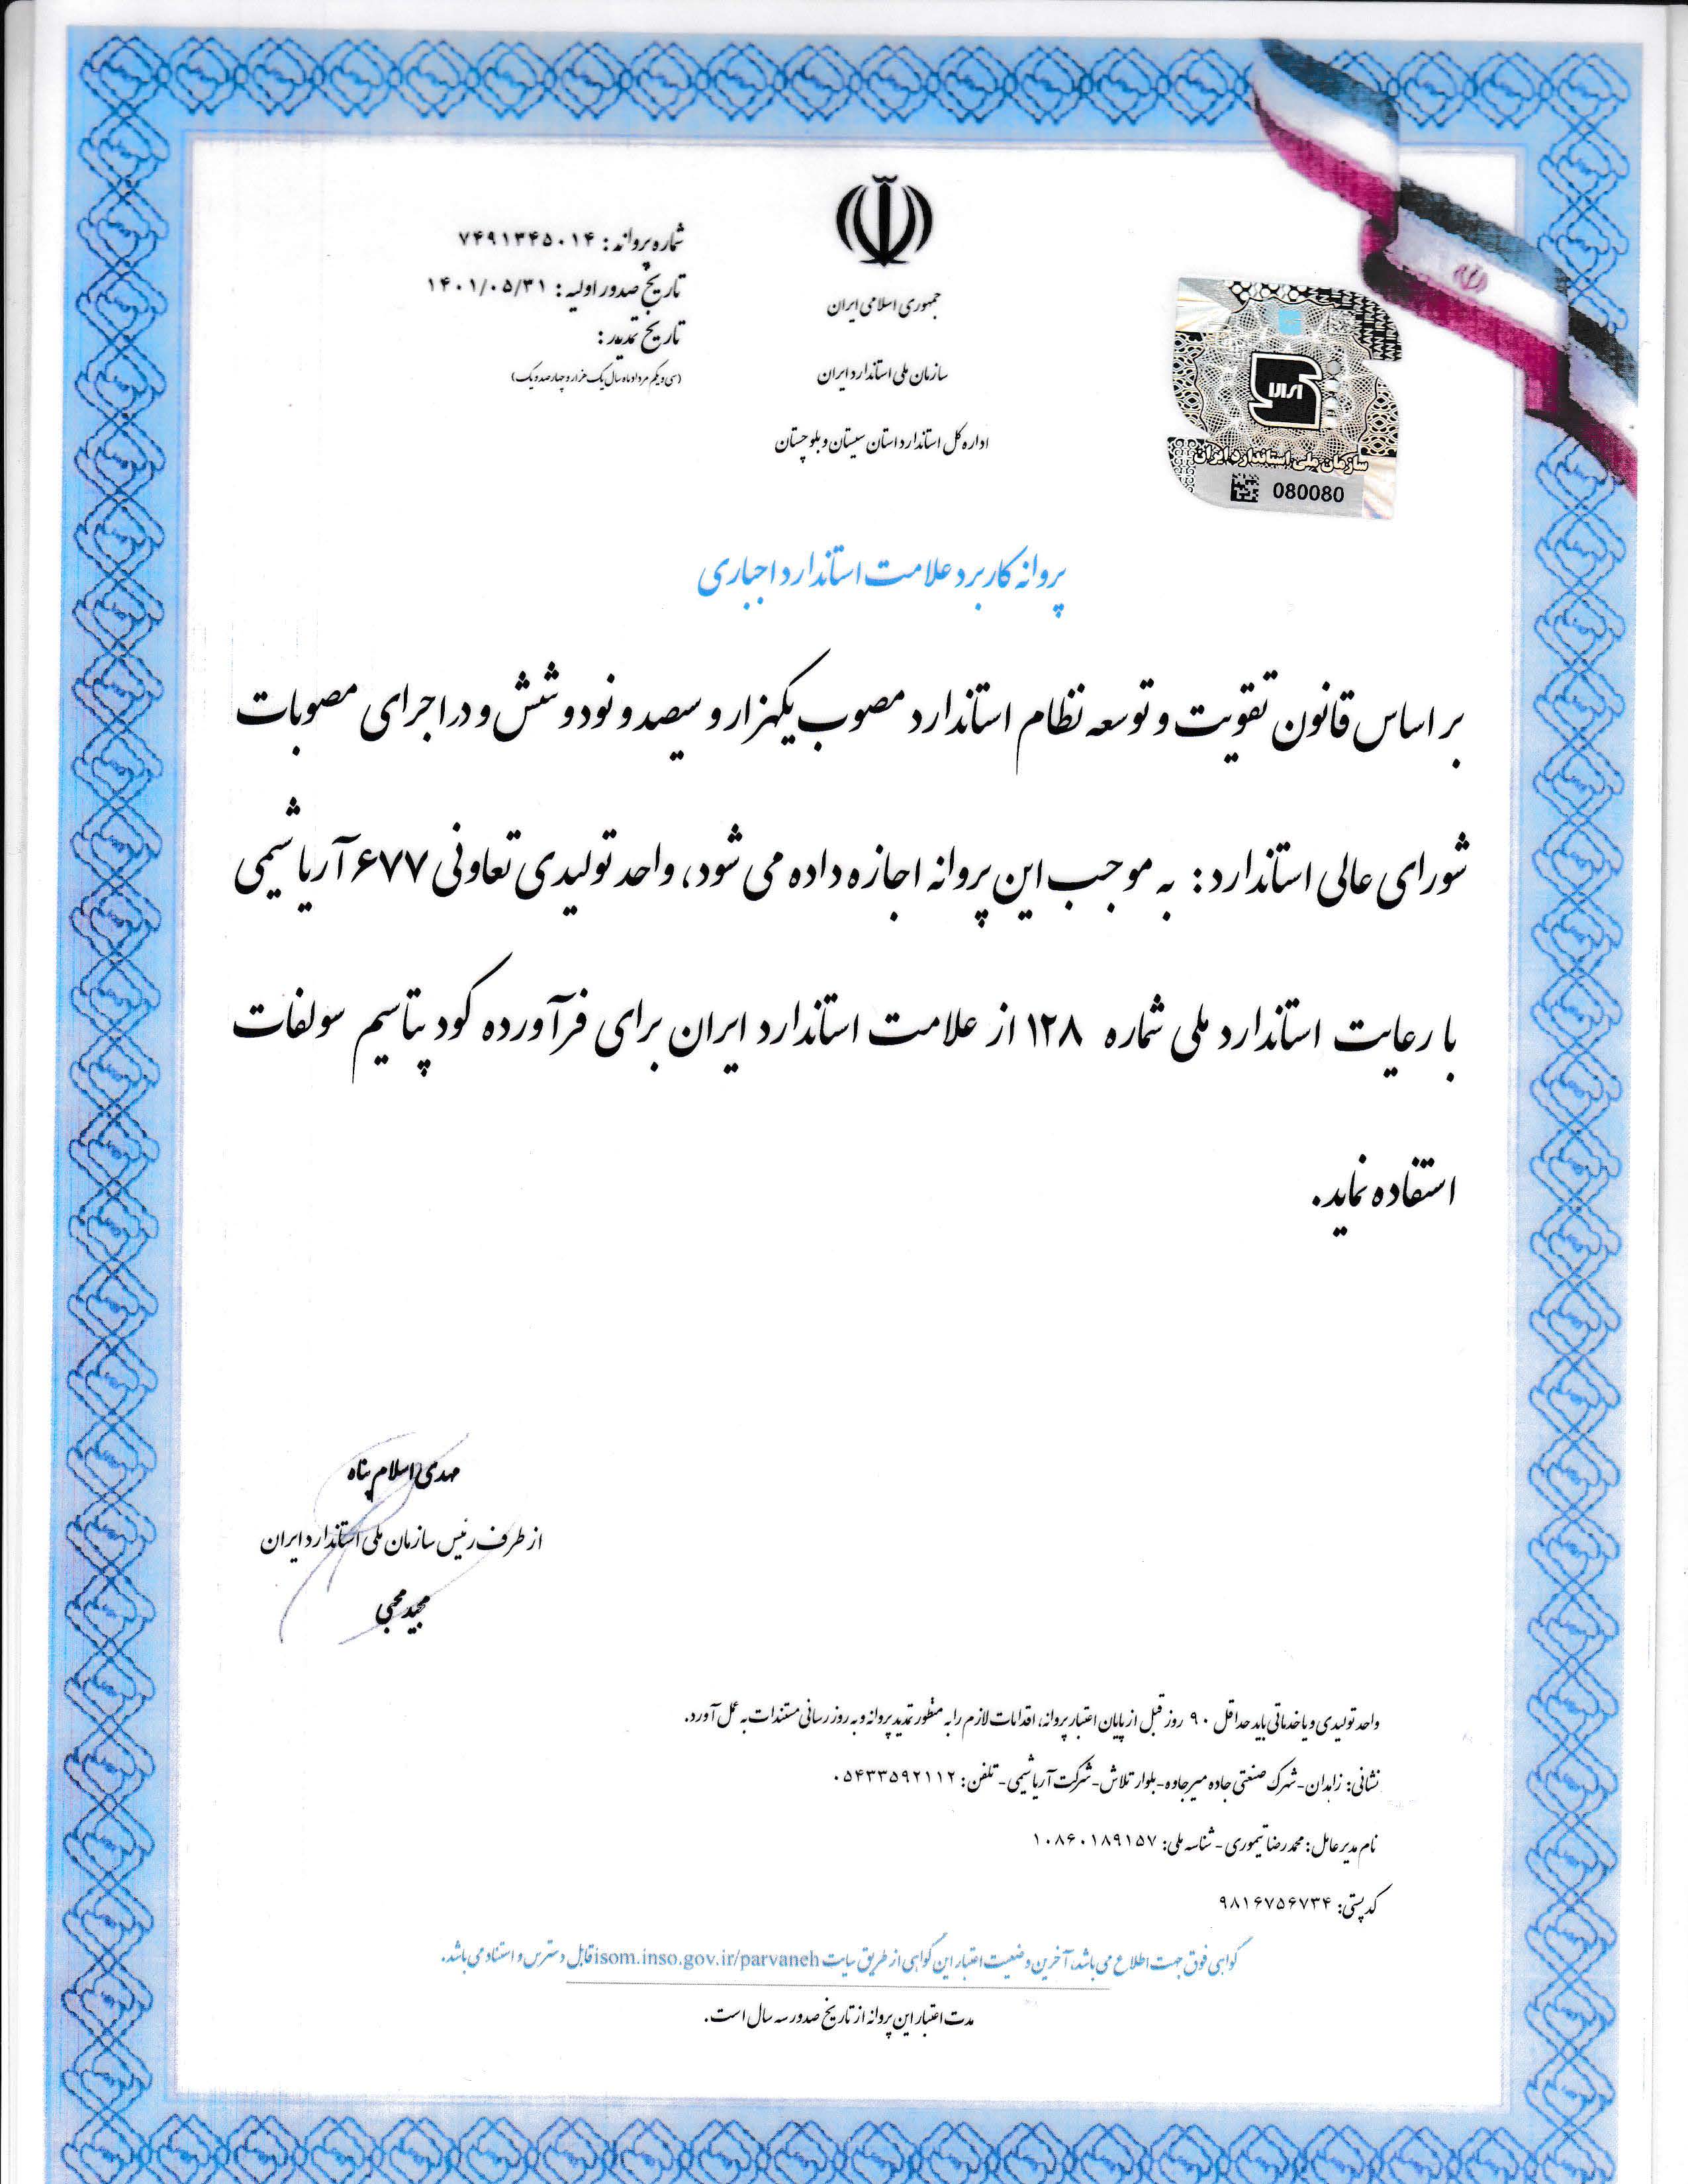 جمهوری اسلامی ایران
سازمان ملی استاندارد ایران
اداره کل استاندارد استان سیستان و بلوچستان
شماره پروانه: ۷۴۹۱۳۴۵۰۱۴
تاریخ صدور اولیه: ۱۴۰۱/۰۵/۳۱
تاریخ تمدید:
(سی و یکم مرداد ماه سال یک هزار و چهارصد و یک)
ایران
سازمان ملی استاندارد ایران
080080
پروانه کاربرد علامت استاندارد اجباری
بر اساس قانون تقویت و توسعه نظام استاندارد مصوب یکهزار و سیصد و نود و شش و در اجرای مصوبات
شورای عالی استاندارد: به موجب این پروانه اجازه داده می شود، واحد تولیدی تعاونی ۶۷۷ آریا شیمی
با رعایت استاندارد ملی شماره ۱۲۸ از علامت استاندارد ایران برای فرآورده کود پتاسیم سولفات
استفاده نماید.
مهدی اسلام پناه
از طرف رئیس سازمان ملی استاندارد ایران
مجید محبی
واحد تولیدی و یا خدماتی باید حداقل ۹۰ روز قبل از پایان اعتبار پروانه، اقدامات لازم را به منظور تمدید پروانه و به روز رسانی مستندات به عمل آورد.
نشانی: زاهدان-شهرک صنعتی جاده میرجاوه-بلوار تلاش-شرکت آریا شیمی - تلفن: ۰۵۴۳۳۵۹۲۱۱۲
نام مدیر عامل: محمدرضا تیموری - شناسه ملی: ۱۰۸۶۰۱۸۹۱۵۷
کد پستی: ۹۸۱۶۷۵۶۷۳۴
گواهی فوق جهت اطلاع می باشد، آخرین وضعیت اعتبار این گواهی از طریق سایت isom.inso.gov.ir/parvaneh قابل دسترس و استناد می باشد.
مدت اعتبار این پروانه از تاریخ صدور سه سال است.